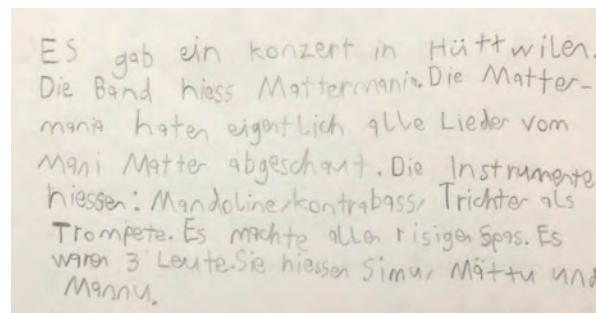 ES gab ein konzert in Hüttwilen.
Die Band hiess Mattermania. Die Matter-
mania haten eigentlich alle Lieder vom
Mani Matter abgeschaut. Die Instrumente
hiessen: Mandoline, kontrabass, Trichter als
Trompete. Es machte allen risigen Spas. Es
waren 3 Leute. Sie hiessen Simu, Mättu und
Mannu.